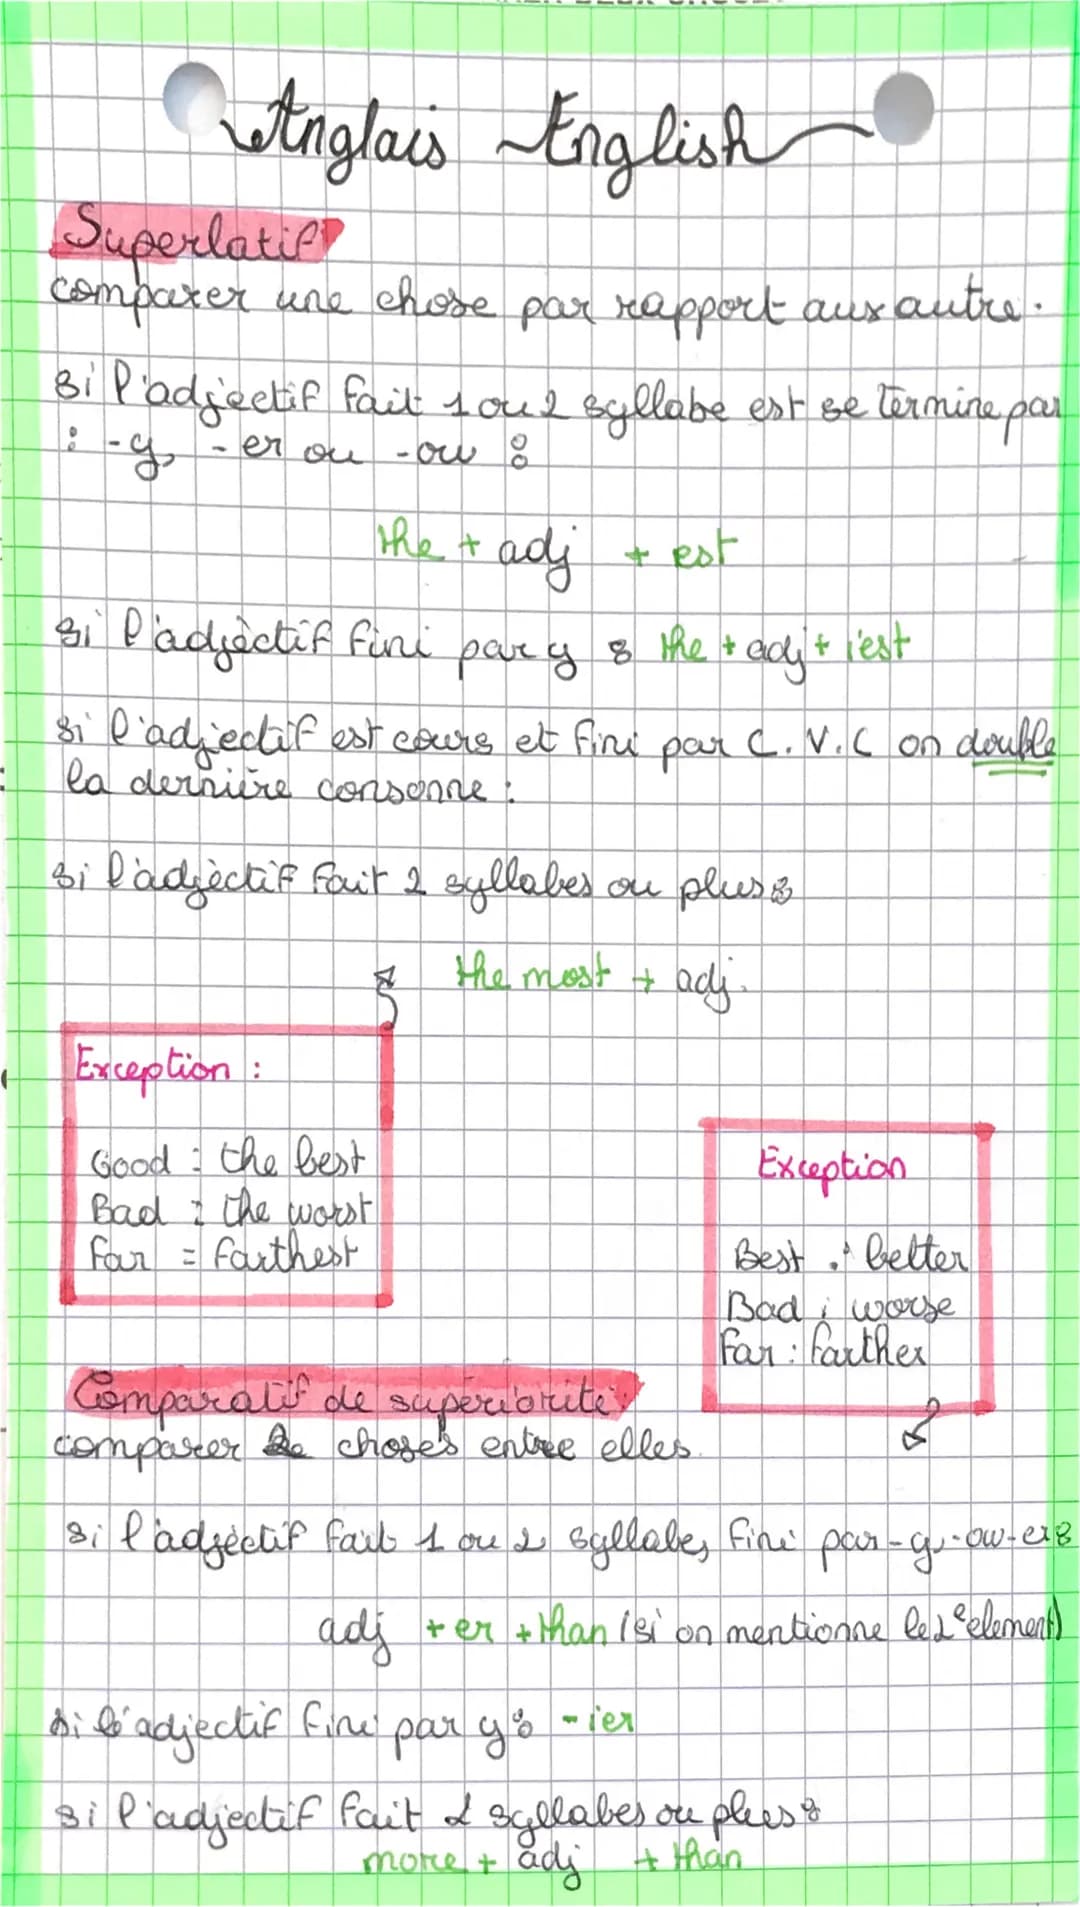 Anglais English
Superlatif
comparer une chose par rapport aux autre.
si l'adjectif fait 1 ou 2 syllabe est se termine par
: -y, -er ou -ow :
the + adj + est
si l'adjèctif fini par y : the + adj + iest
si l'adjectif est cours et fini par C.V.C on double
la dernière consonne :
si l'adjèctif fait 2 syllabes ou plus :
the most + adj.
Exception :
Good : the best
Bad : the worst
Far = farthest
Exception
Best : better
Bad : worse
Far : farther
Comparatif de supériorité:
comparer de choses entre elles.
si l'adjèctif fait 1 ou 2 syllabes, fini par -y, -ow -er :
adj + er + than (si on mentionne le 2e element)
si l'adjectif fini par y : -ier
si l'adjectif fait 2 syllabes ou plus :
more + adj + than